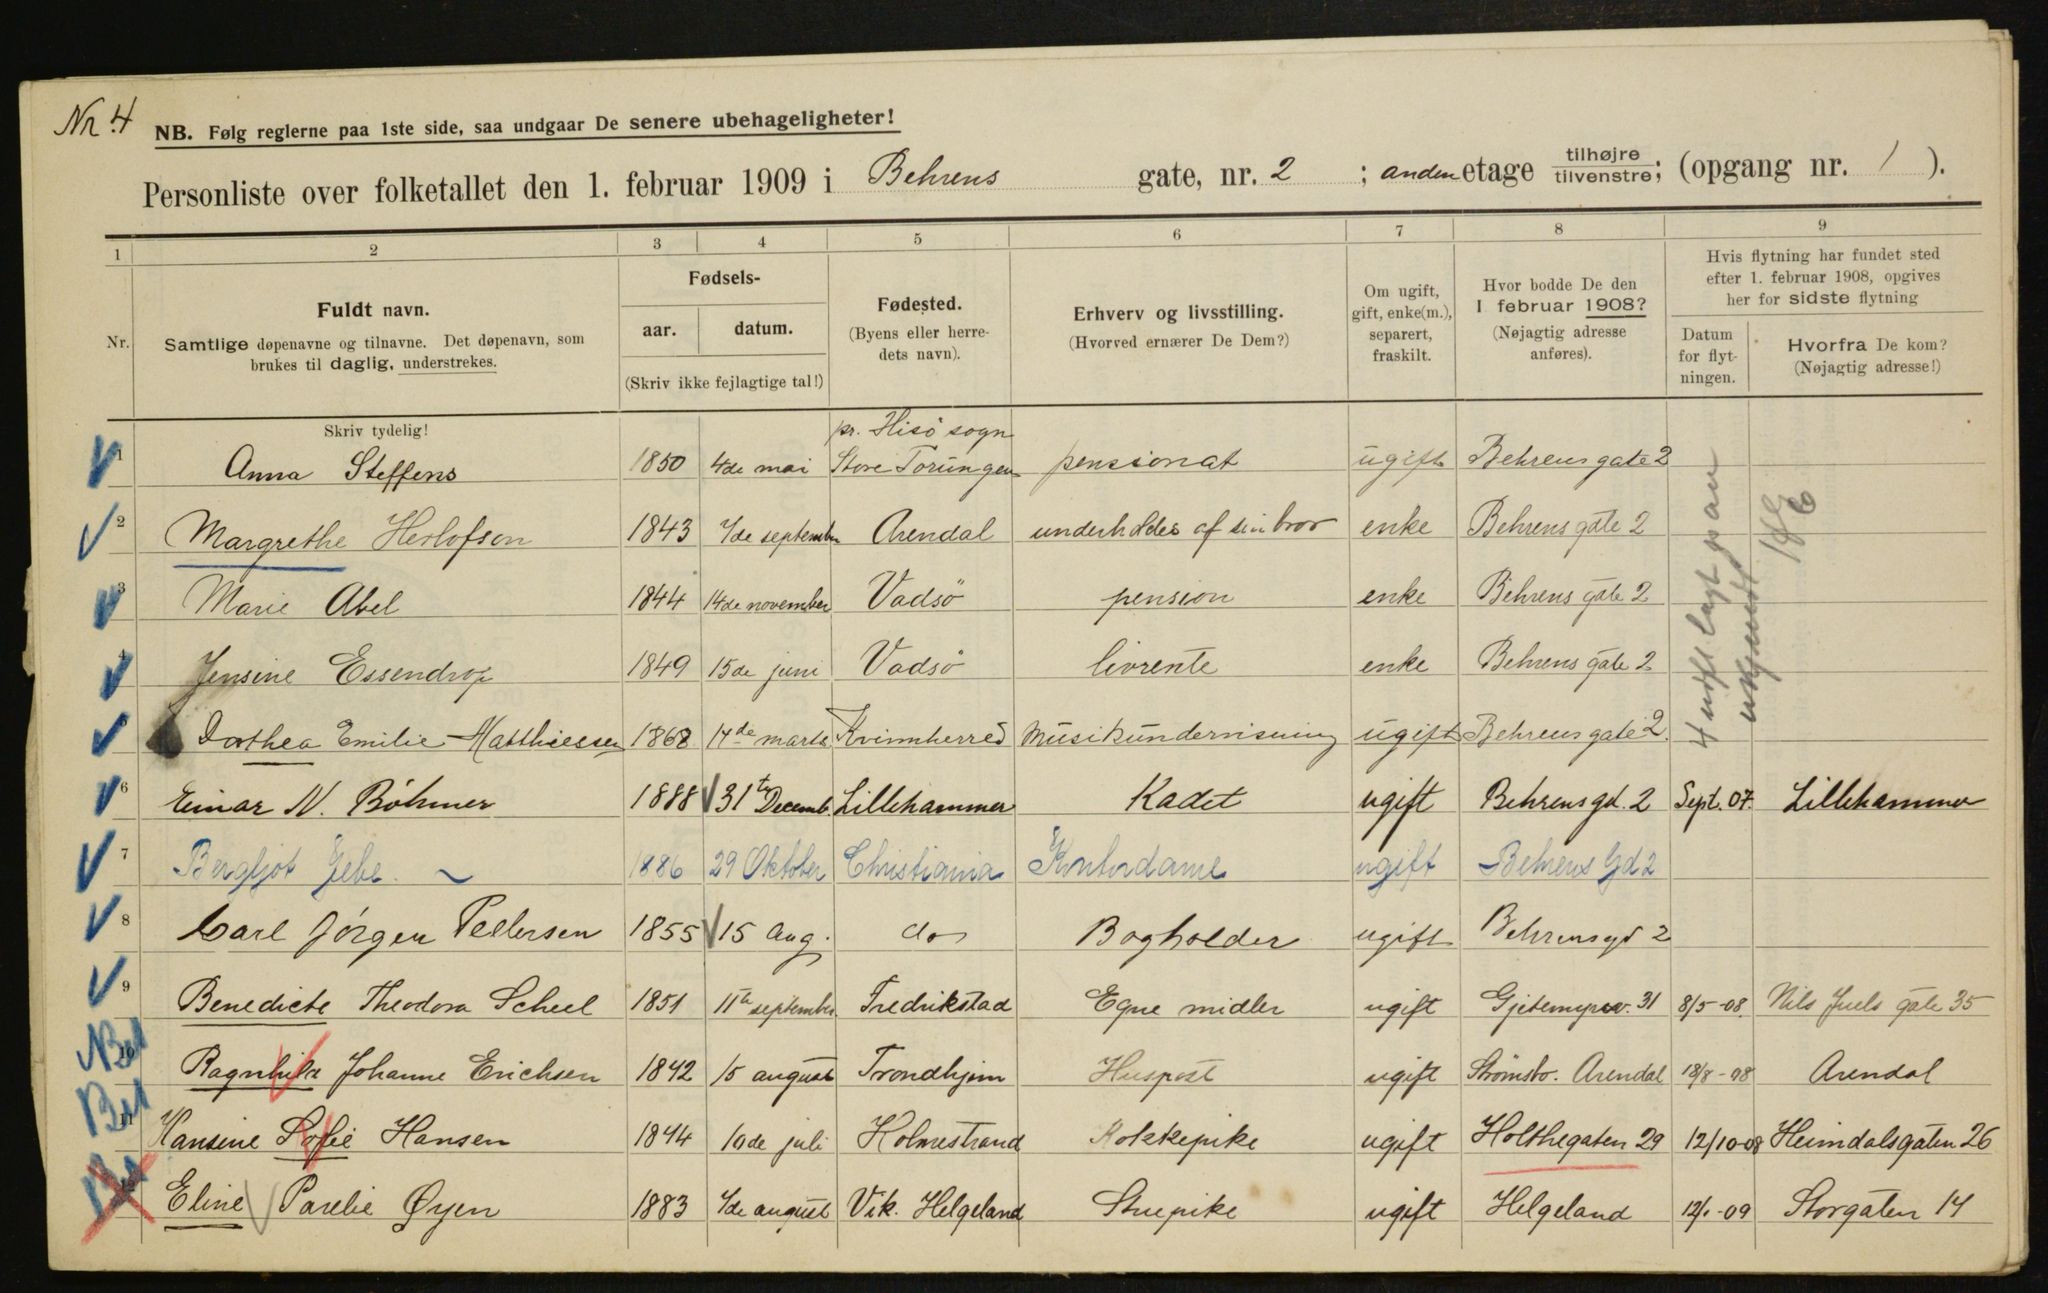 Nr. 4
NB. Følg reglerne paa 1ste side, saa undgaar De senere ubehageligheter!
Personliste over folketallet den 1. februar 1909 i Behrens gate, nr. 2 ; anden etage tilhøjre tilvenstre; (opgang nr. 1 ).
1 2 3 4 5 6 7 8 9
Nr.
Fuldt navn.
Samtlige døpenavne og tilnavne. Det døpenavn, som
brukes til daglig, understrekes.
Fødsels-
aar. datum.
(Skriv ikke fejlagtige tal!)
Fødested.
(Byens eller herre-
dets navn).
Erhverv og livsstilling.
(Hvorved ernærer De Dem?)
Om ugift,
gift, enke(m.),
separert,
fraskilt.
Hvor bodde De den
1 februar 1908?
(Nøjagtig adresse
anføres).
Hvis flytning har fundet sted
efter 1. februar 1908, opgives
her for sidste flytning
Datum
for flyt-
ningen.
Hvorfra De kom?
(Nøjagtig adresse!)
Skriv tydelig!
pr. Hisö sogn
1 Anna Steffens 1850 4de mai Store Torungen pensionat ugift Behrens gate 2
2 Margrethe Herlofson 1843 7de september Arendal underholdes af sin bror enke Behrens gate 2
3 Marie Abel 1844 14de november Vadsö pension enke Behrens gate 2
4 Jensine Essendrop 1849 15de juni Vadsö livrente enke Behrens gate 2
5 Dorthea Emilie Matthiessen 1868 14de marts Kvinnherred Musikundervisning ugift Behrens gate 2.
6 Einar N. Böhmer 1888 31te Decemb. Lillehammer Kadet ugift Behrens gd. 2 Sept. 07. Lillehammer
7 Bergljot Gebe 1886 29 Oktober Christiania Kontordame ugift Behrens Gd 2
8 Carl Jörgen Pettersen 1855 15 Aug. do Bogholder ugift Behrens gd 2
9 Benedicte Theodora Scheel 1851 11te september Fredrikstad Egne midler ugift Gjetemyrsv. 31 8/5-08. Nils Juels gate 35
Bet
10 Ragnhild Johanne Erichsen 1842 15 august Trondhjem Huspost ugift Strömsbo. Arendal 18/8-08 Arendal
Bet
11 Hansine Sofie Hansen 1844 10de juli Holmestrand Kokkepike ugift Holthegaten 29 12/10-08 Heimdalsgaten 26
12 Eline Parelie Øyen 1883 7de august Vik. Helgeland Stuepike ugift Helgeland 12/1-09 Storgaten 14